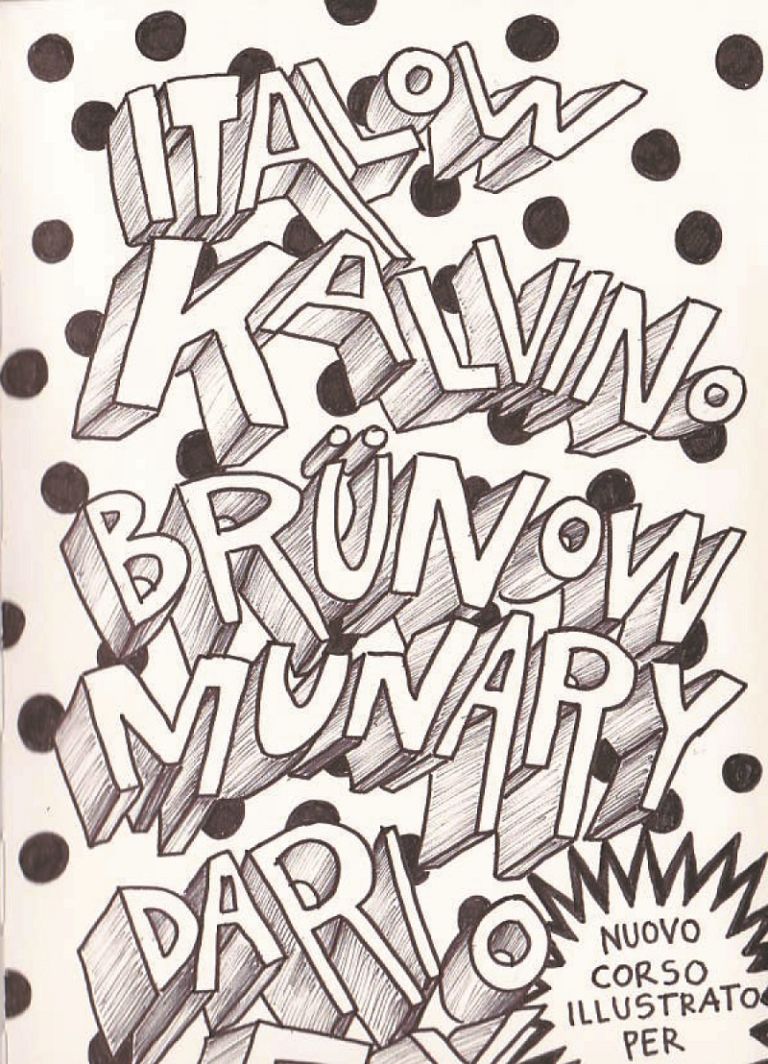 ITALOW
KALVINO
BRÜNOW
MUÑARY
DARIO
NUOVO
CORSO
ILLUSTRATO
PER